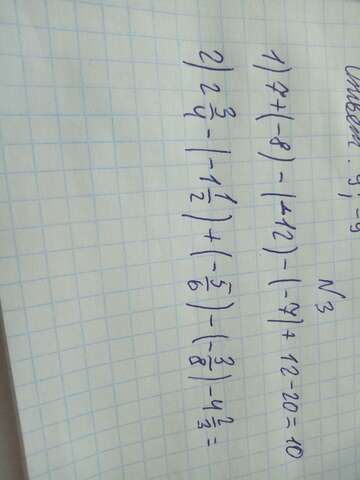 Ответ: 9; -9
N3
1) 7+(-8)-(-12)-(-7)+12-20=10
2) 2 3/4 - (-1 1/2) + (-5/6) - (-3/8) - 4 2/3 =